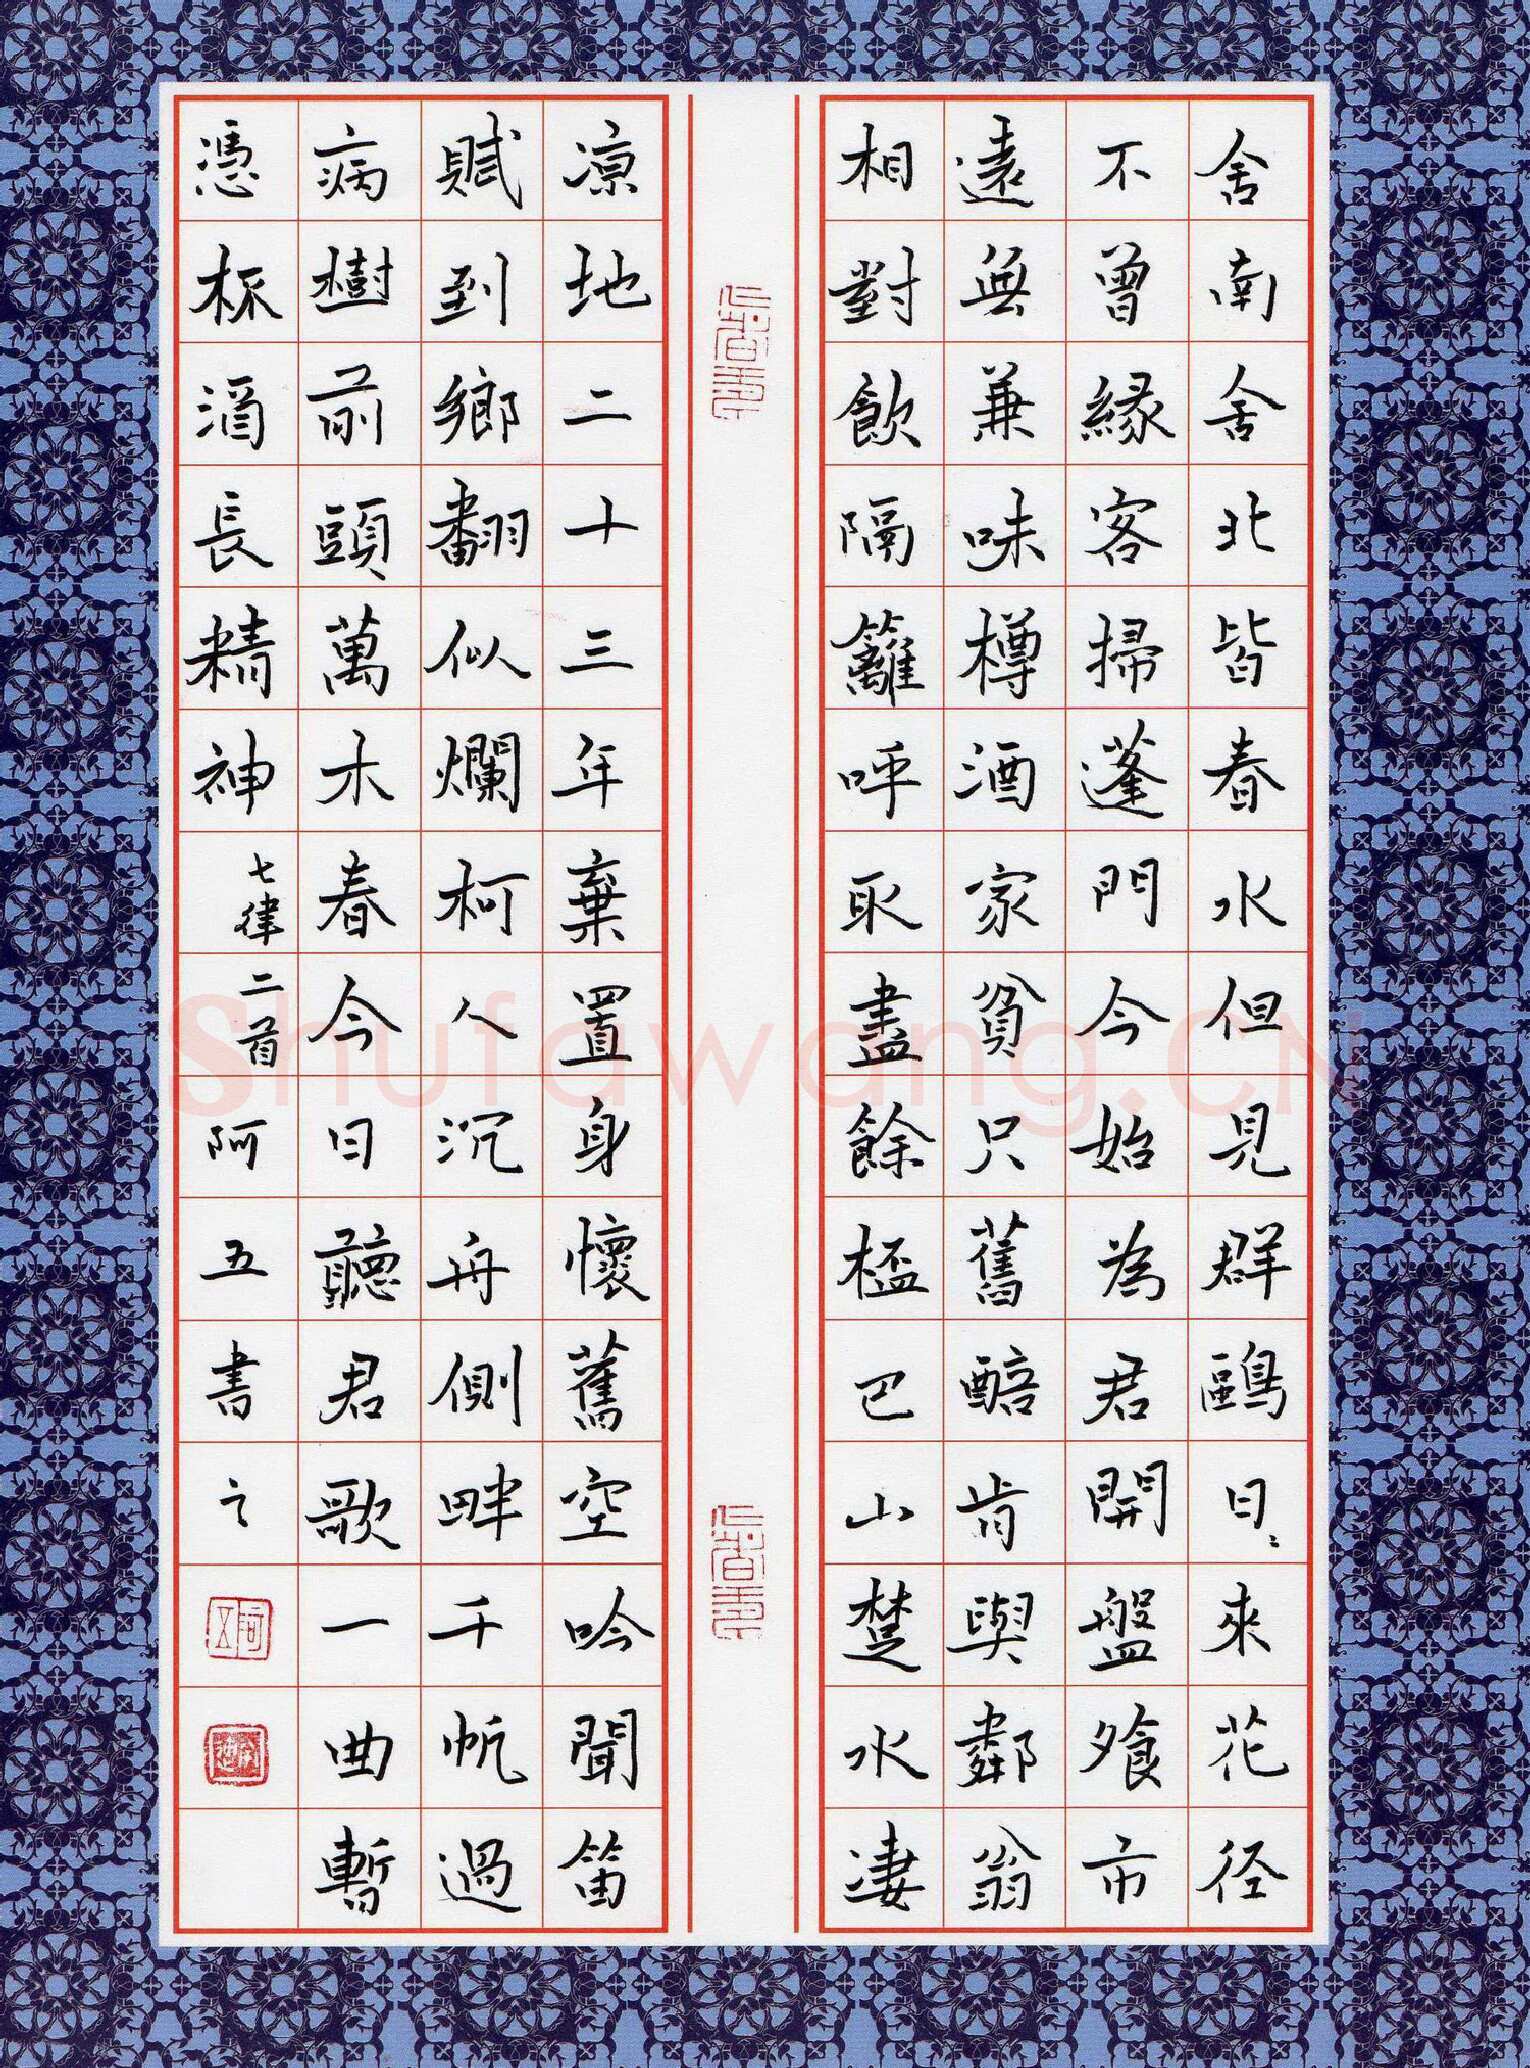 舍南舍北皆春水但見群鷗日〻來花径
不曾緣客掃蓬門今始為君開盤飧市
遠無兼味樽酒家貧只舊醅肯與鄰翁
相對飲隔籬呼取盡餘杯巴山楚水凄
凉地二十三年棄置身懷舊空吟聞笛
賦到鄉翻似爛柯人沉舟側畔千帆過
病樹前頭萬木春今日聽君歌一曲暫
憑杯酒長精神 七律二首 阿五書之
阿五
Shufawang.CN